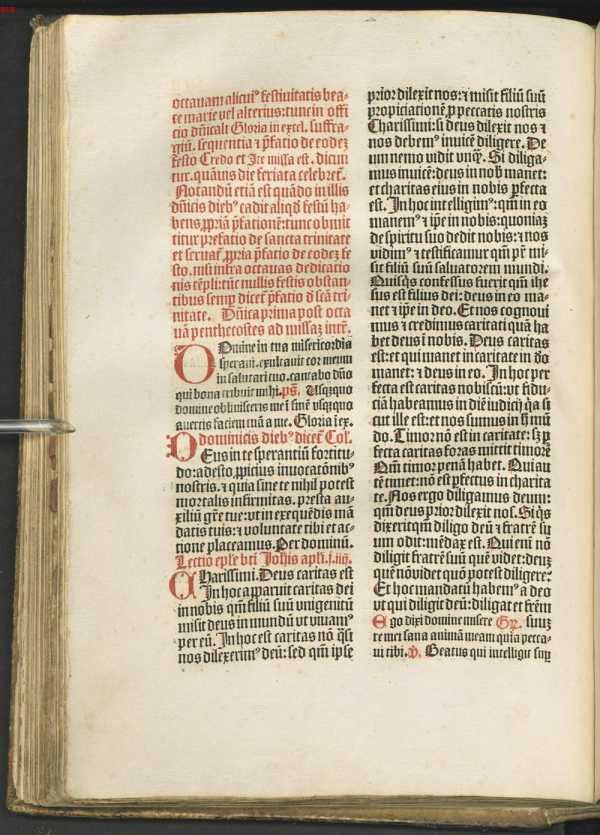 octauam alicuiꝰ festiuitatis bea-
te marie vel alterius: tunc in offi
cio dn̄icali Gloria in excel. suffra-
giū. sequentia ⁊ p̄fatio de eodeʒ
festo Credo et Ite missa est. dicun
tur. quāuis die feriata celebret᷑.
Notandū etiā est quādo in illis
dn̄icis diebꝰ cadit aliqđ festū ha-
bens ꝓpriā p̄fationē: tunc obmit
titur prefatio de sancta trinitate
et seruat᷑ ꝓpria p̄fatio de eodeʒ fe
sto. nisi infra octauas dedicatio
nis tēpli: tūc nullis festis obstan-
tibus semꝑ dicet᷑ p̄fatio đ scā tri-
nitate. Dn̄ica prima post octa
uā penthecostes ad missaʒ intr̄.
Omine in tua misericordia
speraui. exultauit cor meum
in salutari tuo. cantabo dn̄o
qui bona tribuit mihi. ps̄. Usqꝫquo
domine obliuisceris me ī finē vsqꝫquo
auertis faciem tuā a me. Gloria. ex.
dominicis diebꝰ dicet᷑ Col̄.
DEus in te sperantiū fortitu-
do: adesto ꝓpicius inuocatōnibꝰ
nostris. ⁊ quia sine te nihil potest
mortalis infirmitas. presta au-
xiliū gr̄e tue: vt in exequēdis mā
datis tuis: ⁊ voluntate tibi et ac-
tione placeamus. Per dominū.
Lectio ep̄le bt̄i Joh̄is apl̄i. j. iiij.
CHarissimi. Deus caritas est
In hoc apparuit caritas dei
in nobis qm̄ filiū suū vnigenitū
misit deus in mundū vt viuamꝰ
per eū. In hoc est caritas nō q̄si
nos dilexerimꝰ deū: sed qm̄ ipse
prior dilexit nos: ⁊ misit filiū suū
propiciationē ꝓ peccatis nostris
Charissimi: si deus dilexit nos ⁊
nos debemꝰ inuicē diligere. De
um nemo vidit vnqꝫ. Si diliga-
mus inuicē: deus in nob̄ manet:
et charitas eius in nobis ꝑfecta
est. In hoc intelligimꝰ: qm̄ in eo
manemꝰ ⁊ ip̄e in nobis: quoniaʒ
de spiritu suo dedit nobis: ⁊ nos
vidimꝰ ⁊ testificamur qm̄ pr̄ mi-
sit filiū suū saluatorem mundi.
Quisqꝫ confessus fuerit qm̄ ihe
sus est filius dei: deus in eo ma-
net ⁊ ip̄e in deo. Et nos cognoui
mus ⁊ credimus caritati quā ha
bet deus ī nobis. Deus caritas
est: et qui manet in caritate in đo
manet: ⁊ deus in eo. In hoc per
fecta est caritas nobiscū: vt fidu-
ciā habeamus in diē iudicij: q̄a si
cut ille est: et nos sumus in h̄ mū
do. Timor nō est in caritate: sʒ ꝑ
fecta caritas foras mittit timorē
Qm̄ timor penā habet. Qui au
tē timet: nō est ꝑfectus in charita
te. Nos ergo diligamus deum:
qm̄ deus prior dilexit nos. Si q̄s
dixerit qm̄ diligo deū ⁊ fratrē su
um odit: mēdax est. Qui em̄ nō
diligit fratrē suū quē videt: deuʒ
quē nō videt quō potest diligere:
Et hoc mandatū habemꝰ a deo
vt qui diligit deū: diligat et fr̄em
Ego dixi domine misere Gr̄. suuʒ
te mei sana animā meam quia pecca-
ui tibi. v̄. Beatus qui intelligit suꝑ